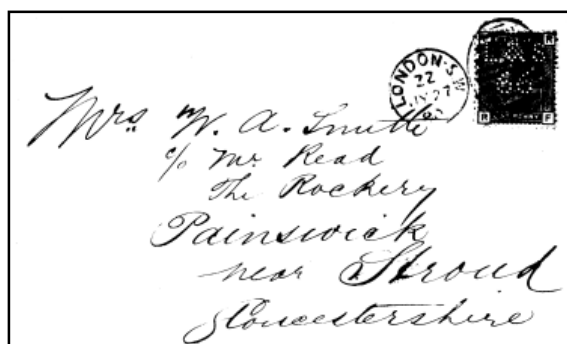 LONDON·S.W
22
R R
R F
Mrs W. A. Smith
c/o Mr. Read
The Rockery
Painswick
near Stroud
Gloucestershire